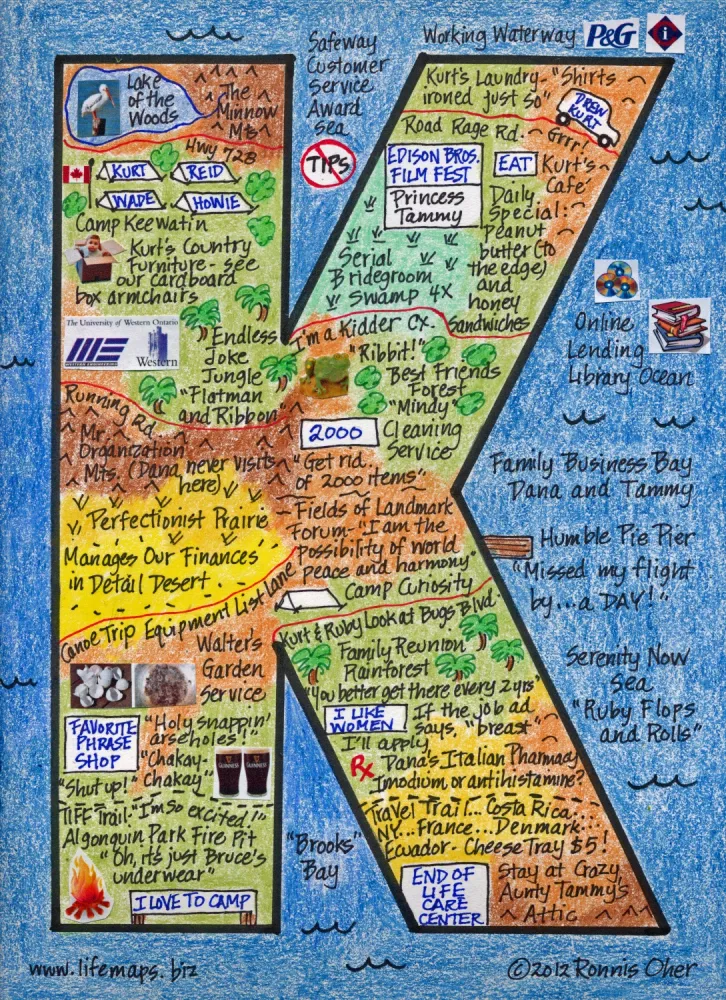 Safeway
Customer
Service
Award
Sea
TIPS
Working Waterway
P&G
i
Lake
of the
Woods
The
Minnow
Mts.
Hwy 728
KURT
REID
WADE
HOWIE
Camp Keewatin
Kurt's Country
Furniture - see
our cardboard
box armchairs
The University of Western Ontario
WESTERN ENGINEERING
Western
Endless
Joke
Jungle
"Flatman
and Ribbon"
Running Rd.
Mr.
Organization
Mts. (Dana never visits
here)
Perfectionist Prairie
Manages Our Finances
in Detail Desert
Canoe Trip Equipment List Lane
Walter's
Garden
Service
FAVORITE
PHRASE
SHOP
"Holy snappin'
arseholes!"
"Chakay-
Chakay"
GUINNESS
GUINNESS
"Shut up!"
TIFF Trail - "I'm so excited!"
Algonquin Park Fire Pit
"Oh, it's just Bruce's
underwear"
I LOVE TO CAMP
Kurt's Laundry - "Shirts
ironed just so"
DREW
KURT
Road Rage Rd. - Grrr!
EDISON BROS.
FILM FEST
Princess
Tammy
EAT
Kurt's
Cafe
Daily
Special:
Peanut
butter (to
the edge)
and
honey
Sandwiches
Serial
Bridegroom
Swamp 4X
I'm a Kidder Cx.
"Ribbit!"
Best Friends
Forest
"Mindy"
2000
Cleaning
Service
"Get rid
of 2000 items"
Fields of Landmark
Forum - "I am the
possibility of world
peace and harmony"
Camp Curiosity
Kurt & Ruby Look at Bugs Blvd.
Family Reunion
Rainforest
"You better get there every 2 yrs"
I LIKE
WOMEN
If the job ad
says, "breast"
I'll apply
Rx
Dana's Italian Pharmacy
Imodium or antihistamine?
Travel Trail... Costa Rica...
NY... France... Denmark...
Ecuador - Cheese Tray $5!
END OF
LIFE
CARE
CENTER
Stay at Crazy
Aunty Tammy's
Attic
Online
Lending
Library Ocean
Family Business Bay
Dana and Tammy
Humble Pie Pier
"Missed my flight
by...a DAY!"
Serenity Now
Sea
"Ruby Flops
and Rolls"
"Brooks"
Bay
www.lifemaps.biz
©2012 Ronnis Oher